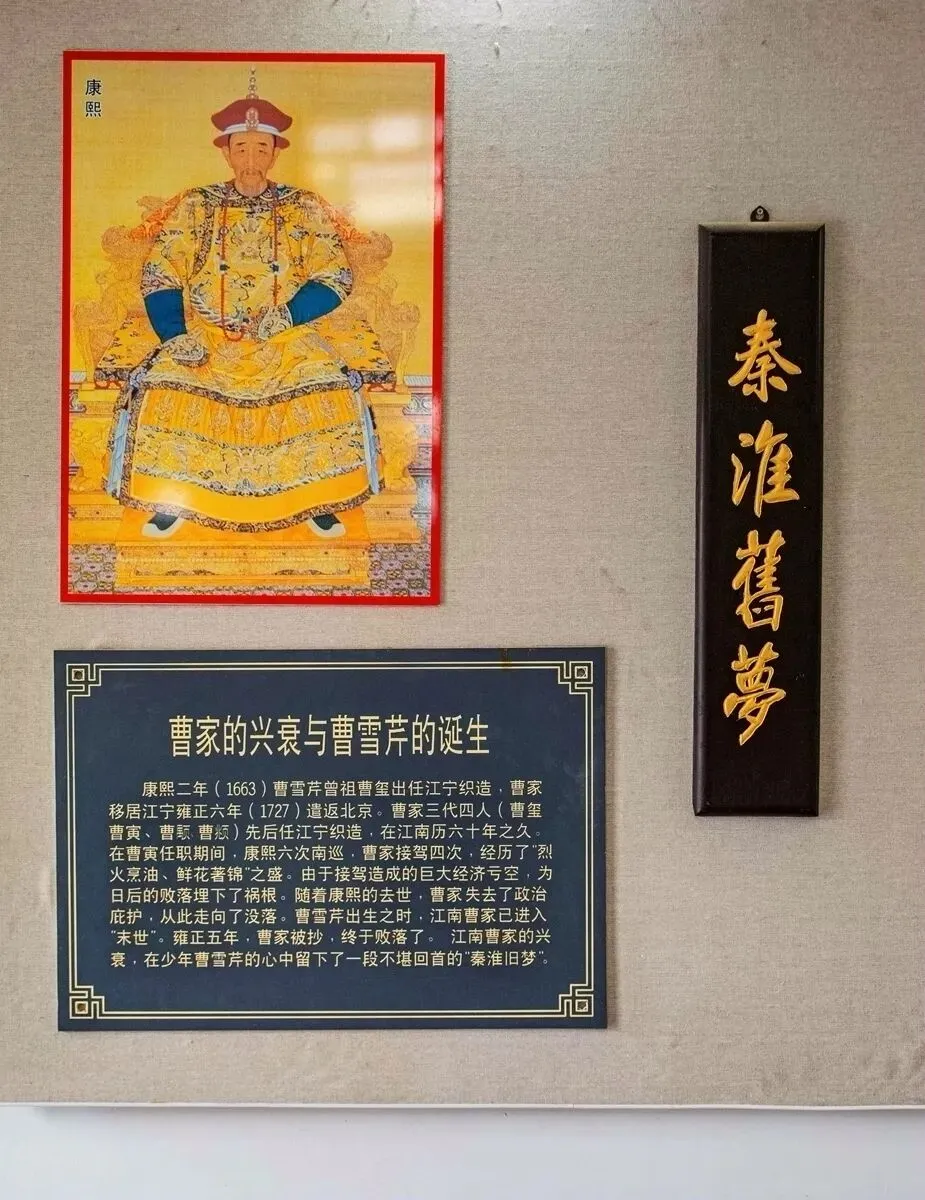 康熙
秦淮舊夢
曹家的兴衰与曹雪芹的诞生
康熙二年(1663)曹雪芹曾祖曹玺出任江宁织造,曹家
移居江宁雍正六年(1727)遣返北京。曹家三代四人(曹玺
曹寅、曹颙、曹𫖯)先后任江宁织造,在江南历六十年之久。
在曹寅任职期间,康熙六次南巡,曹家接驾四次,经历了“烈
火烹油、鲜花著锦”之盛。由于接驾造成的巨大经济亏空,为
日后的败落埋下了祸根。随着康熙的去世,曹家失去了政治
庇护,从此走向了没落。曹雪芹出生之时,江南曹家已进入
“末世”。雍正五年,曹家被抄,终于败落了。 江南曹家的兴
衰,在少年曹雪芹的心中留下了一段不堪回首的“秦淮旧梦”。